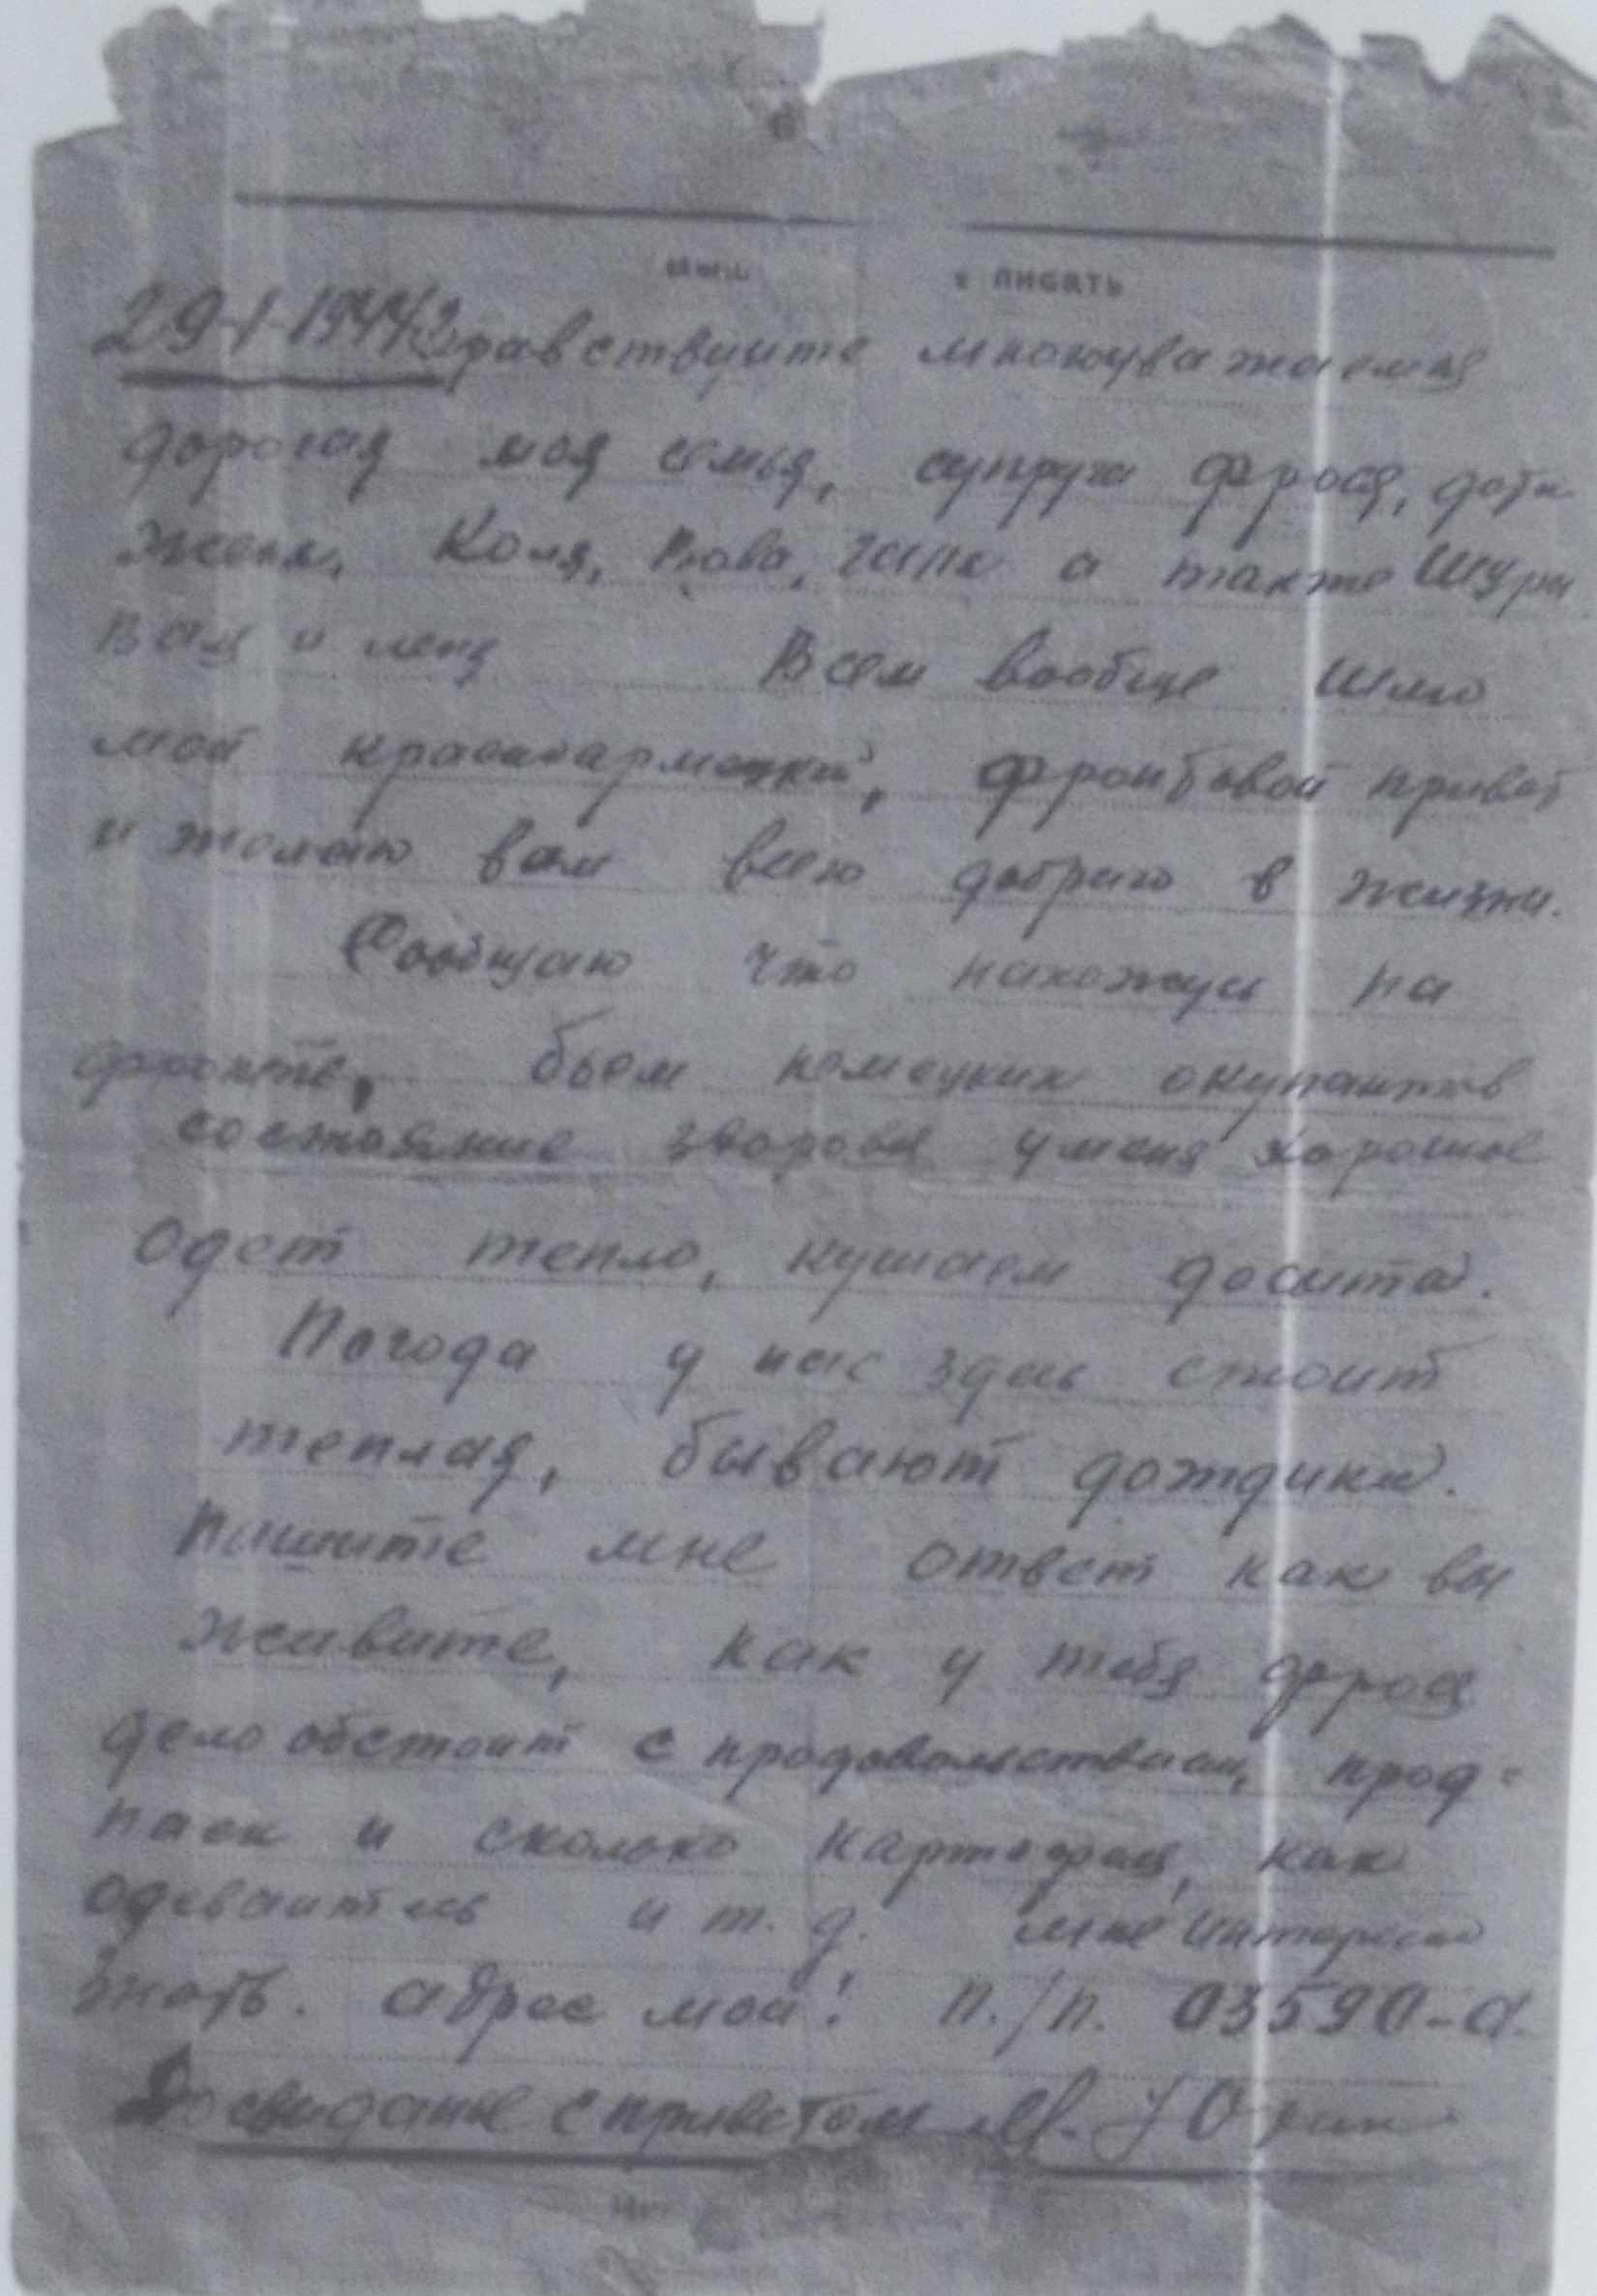 писать
29-I-1944 Здравствуите многоуважаемая
дорогая моя семья, супруга Фрося, дети
Женя, Коля, Вова, Галя а также Шура
Вася и
Всем вообще шлю
мой красноармейский, фронтовой привет
и желаю вам всего доброго в жизни.
Сообщаю что нахожусь на
фронте, бьем немецких окупантов
состояние здоровя у меня хорошое
Одет тепло, кушаем досыта.
Погода у нас здесь стоит
теплая, бывают дождики.
Пишите мне ответ как вы
живите, как у тебя Фрося
дело обстоит с продовольствием, прод-
паек и сколько картофеля, как
одеваитесь и т. д. мне интересно
знать. адрес мой: п./п. 03590-а.
До свидание с приветом